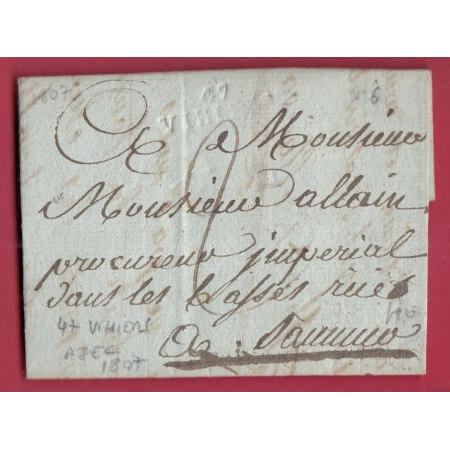 1807
N° 6
A Monsieur
Monsieur allain
procureur jmperial
dans les basses rues
A Saumur
47 VIHIERS
A DEC
1807